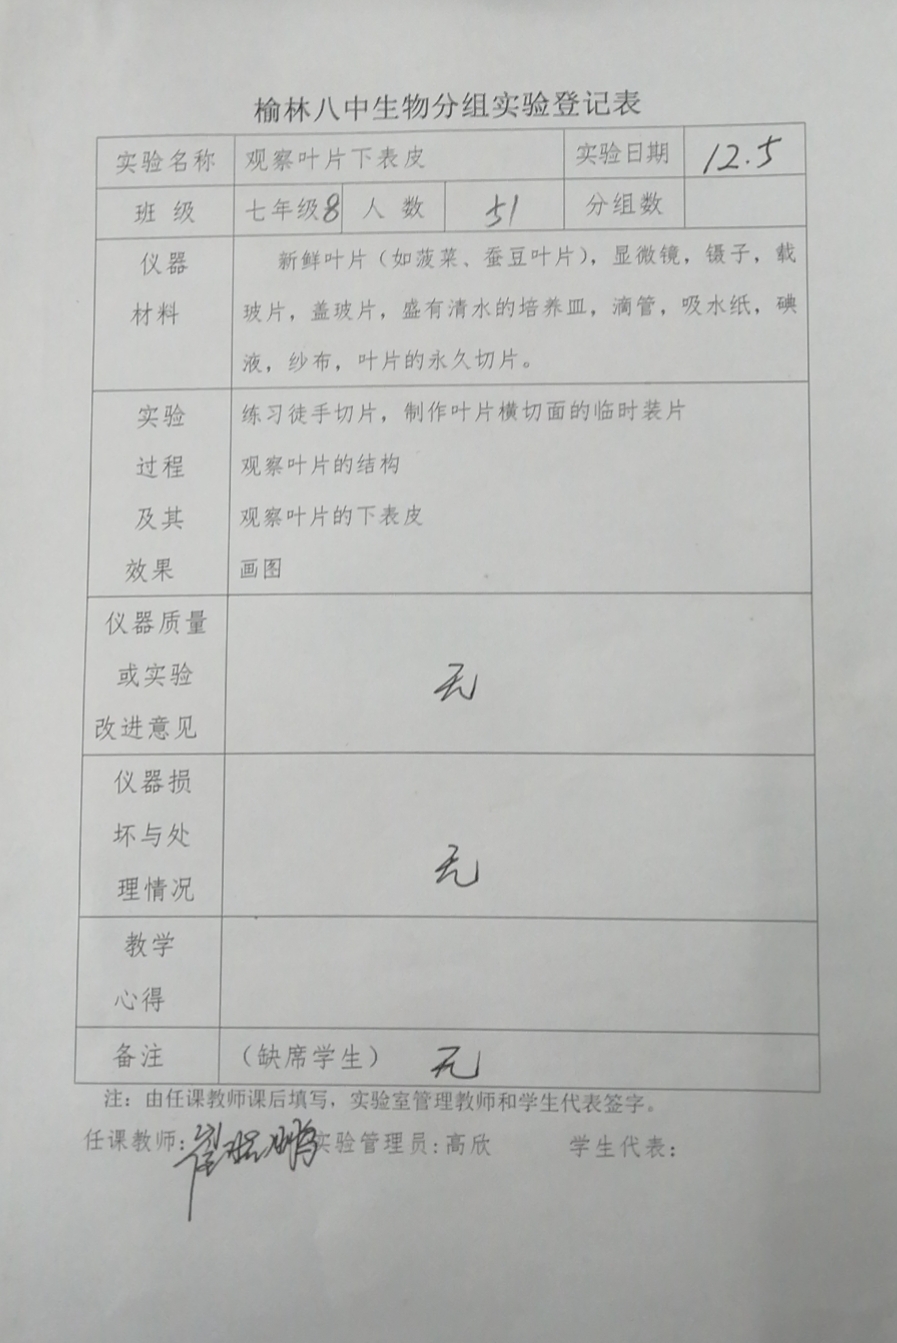 榆林八中生物分组实验登记表
实验名称 观察叶片下表皮 实验日期 12.5
班 级 七年级8 人 数 51 分组数
仪器 新鲜叶片（如菠菜、蚕豆叶片），显微镜，镊子，载
材料 玻片，盖玻片，盛有清水的培养皿，滴管，吸水纸，碘
液，纱布，叶片的永久切片。
实验 练习徒手切片，制作叶片横切面的临时装片
过程 观察叶片的结构
及其 观察叶片的下表皮
效果 画图
仪器质量
或实验 无
改进意见
仪器损
坏与处 无
理情况
教学
心得
备注 （缺席学生） 无
注：由任课教师课后填写，实验室管理教师和学生代表签字。
任课教师: 实验管理员: 高欣 学生代表: